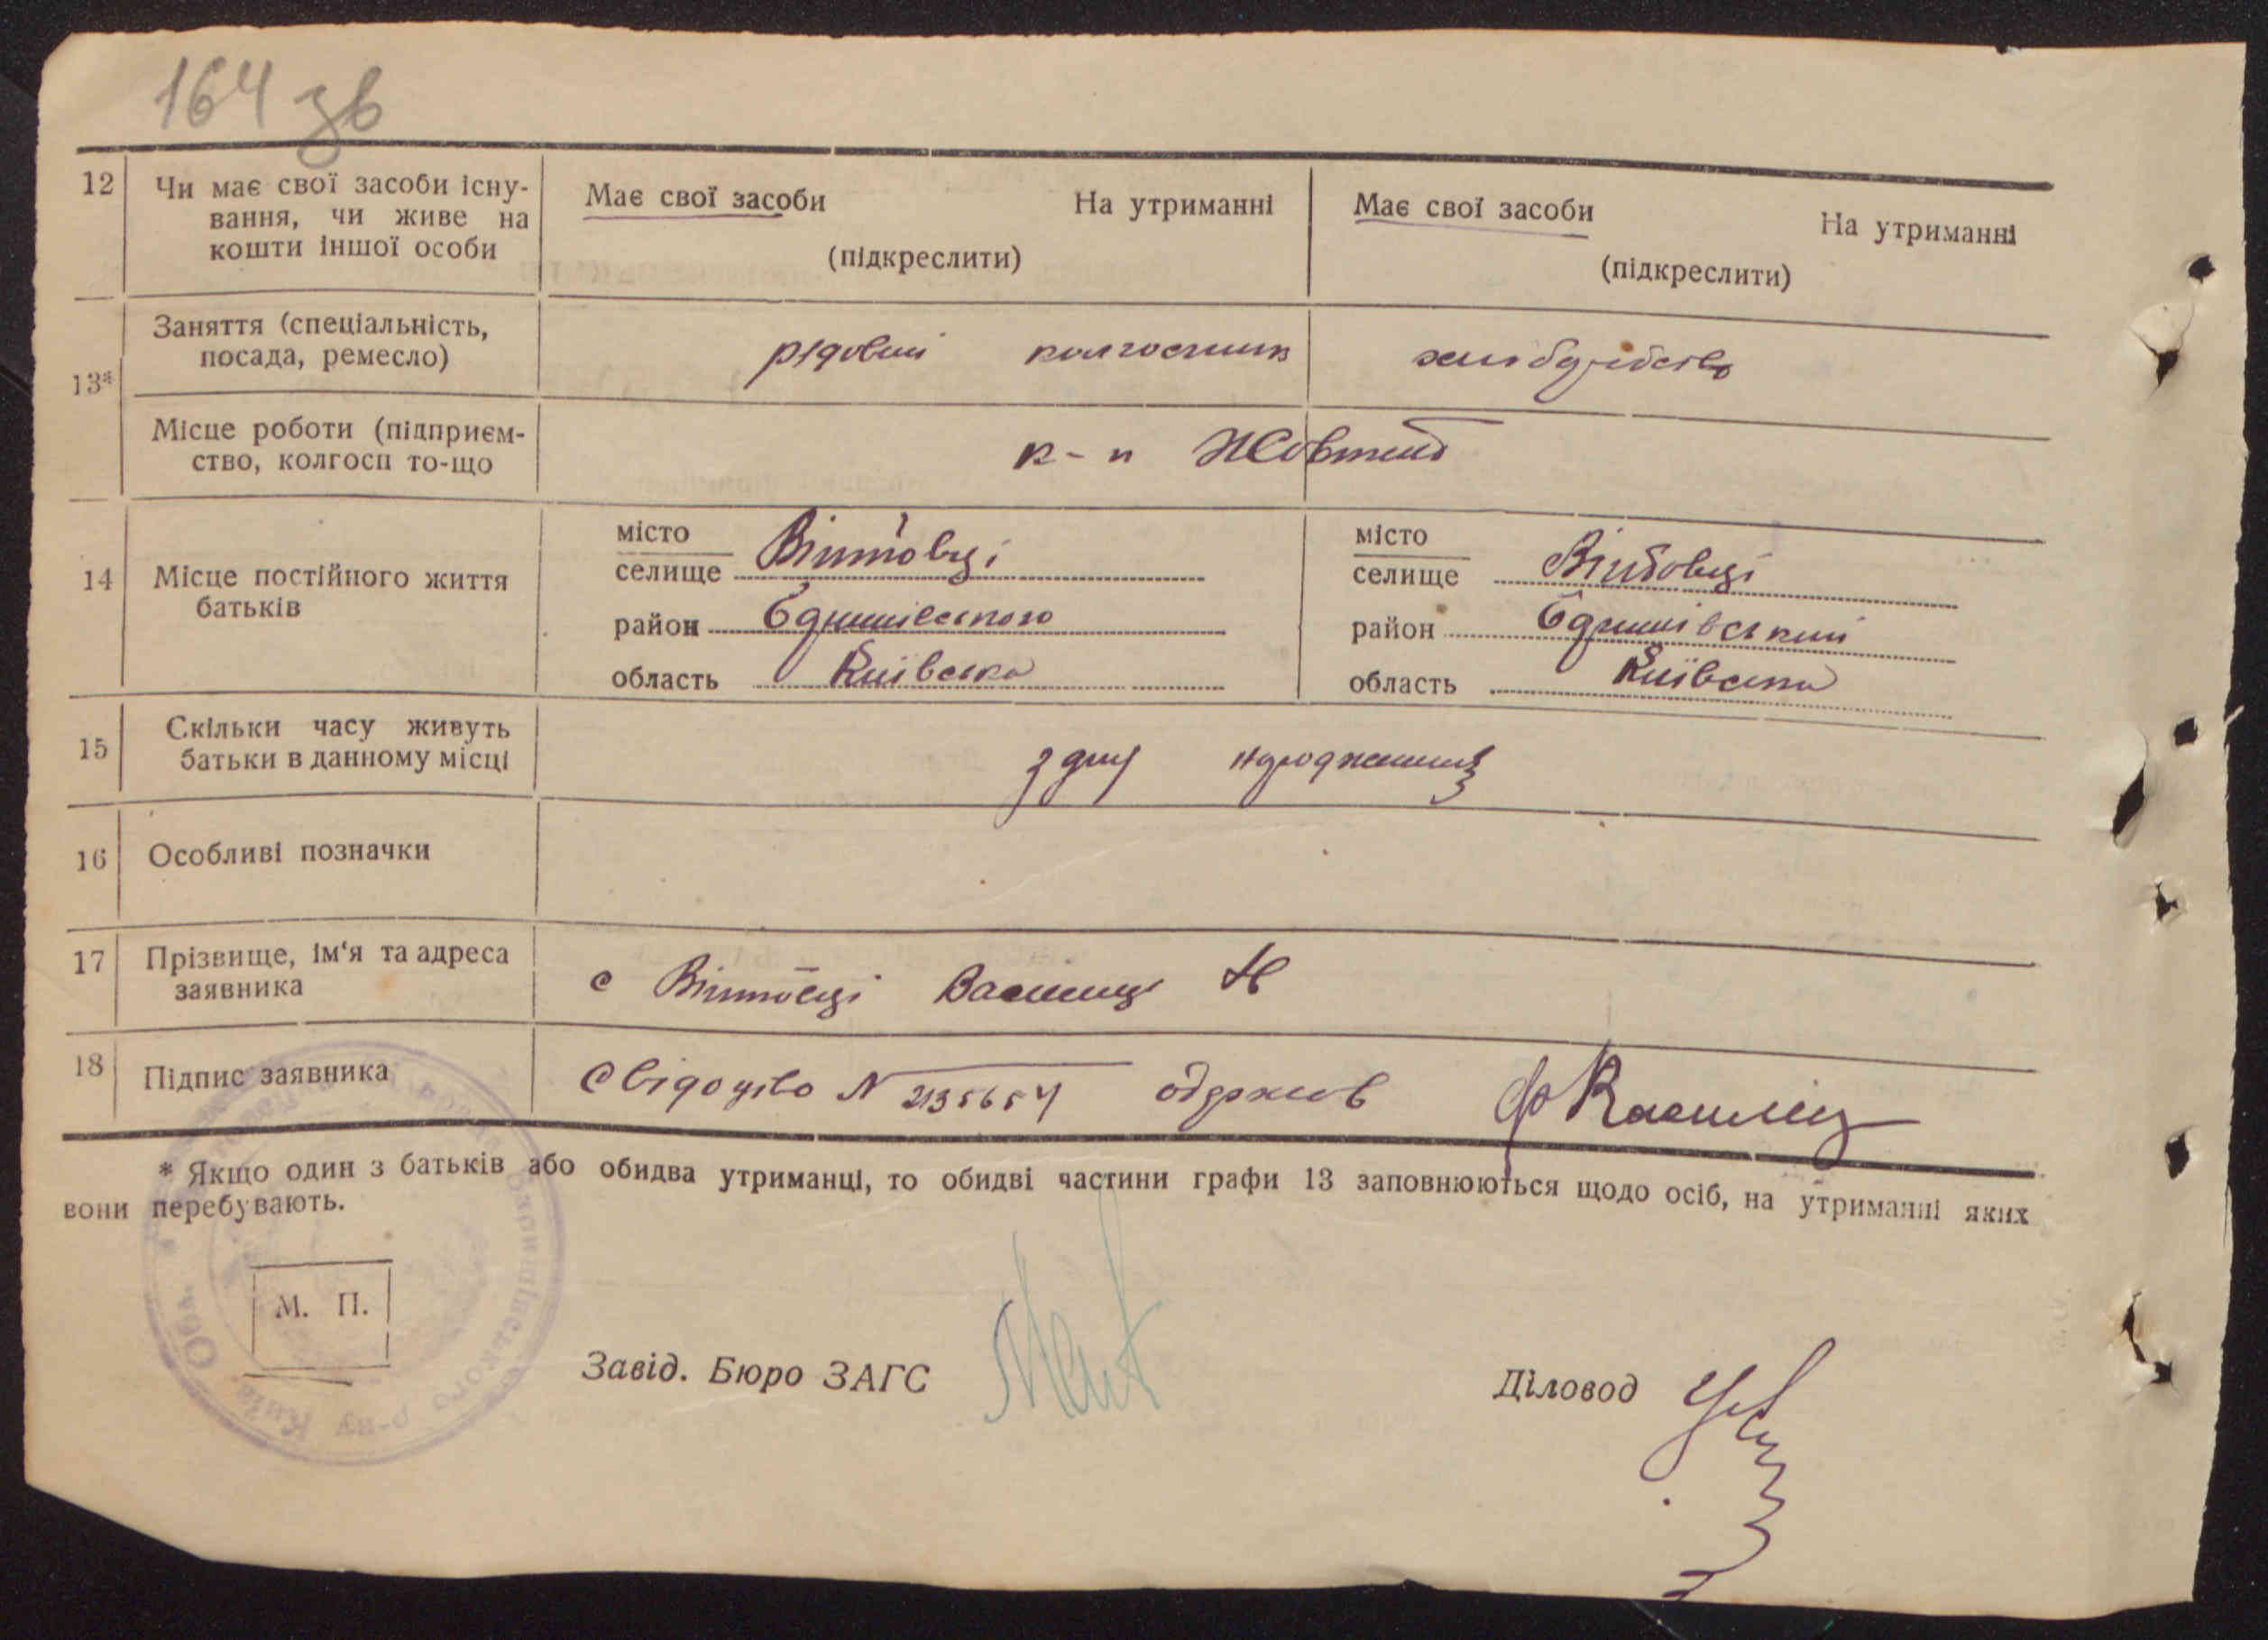 164 зв
12 Чи має свої засоби існу-
вання, чи живе на
кошти іншої особи
Має свої засоби На утриманні
(підкреслити)
Має свої засоби На утриманні
(підкреслити)
13*
Заняття (спеціальність,
посада, ремесло)
рядовий колгоспник
хліборобство
Місце роботи (підприєм-
ство, колгосп то-що
к-п Жовтень
14 Місце постійного життя
батьків
місто
селище Вінтовці
район
область Київська
місто
селище Вінтовці
район
область Київська
15 Скільки часу живуть
батьки в данному місці
з дня народження
16 Особливі позначки
17 Прізвище, ім‘я та адреса
заявника
с Вінтовці Василець
18 Підпис заявника
Свідоцтво N 2135654 одержав
* Якщо один з батьків або обидва утриманці, то обидві частини графи 13 заповнюються щодо осіб, на утриманні яких
вони перебувають.
М. П.
Завід. Бюро ЗАГС
Діловод